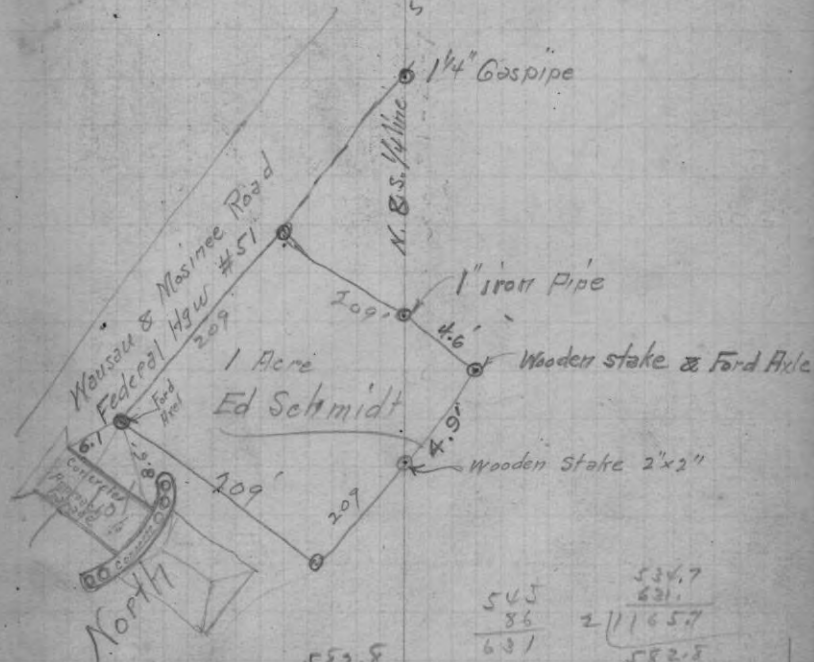 S
1 1/4" Gaspipe
N. & S. 1/4 line
Wausau & Mosinee Road
Federal Hgw #51
209
209'
1" iron Pipe
4.6'
Wooden stake & Ford Axle
1 Acre
Ed Schmidt
Ford
Axel
6.1
8.6'
4.9'
Wooden Stake 2"x2"
209'
209
Concrete
Concrete
North
545
86
631
534.7
631.
2 1165.7
582.8
582.8